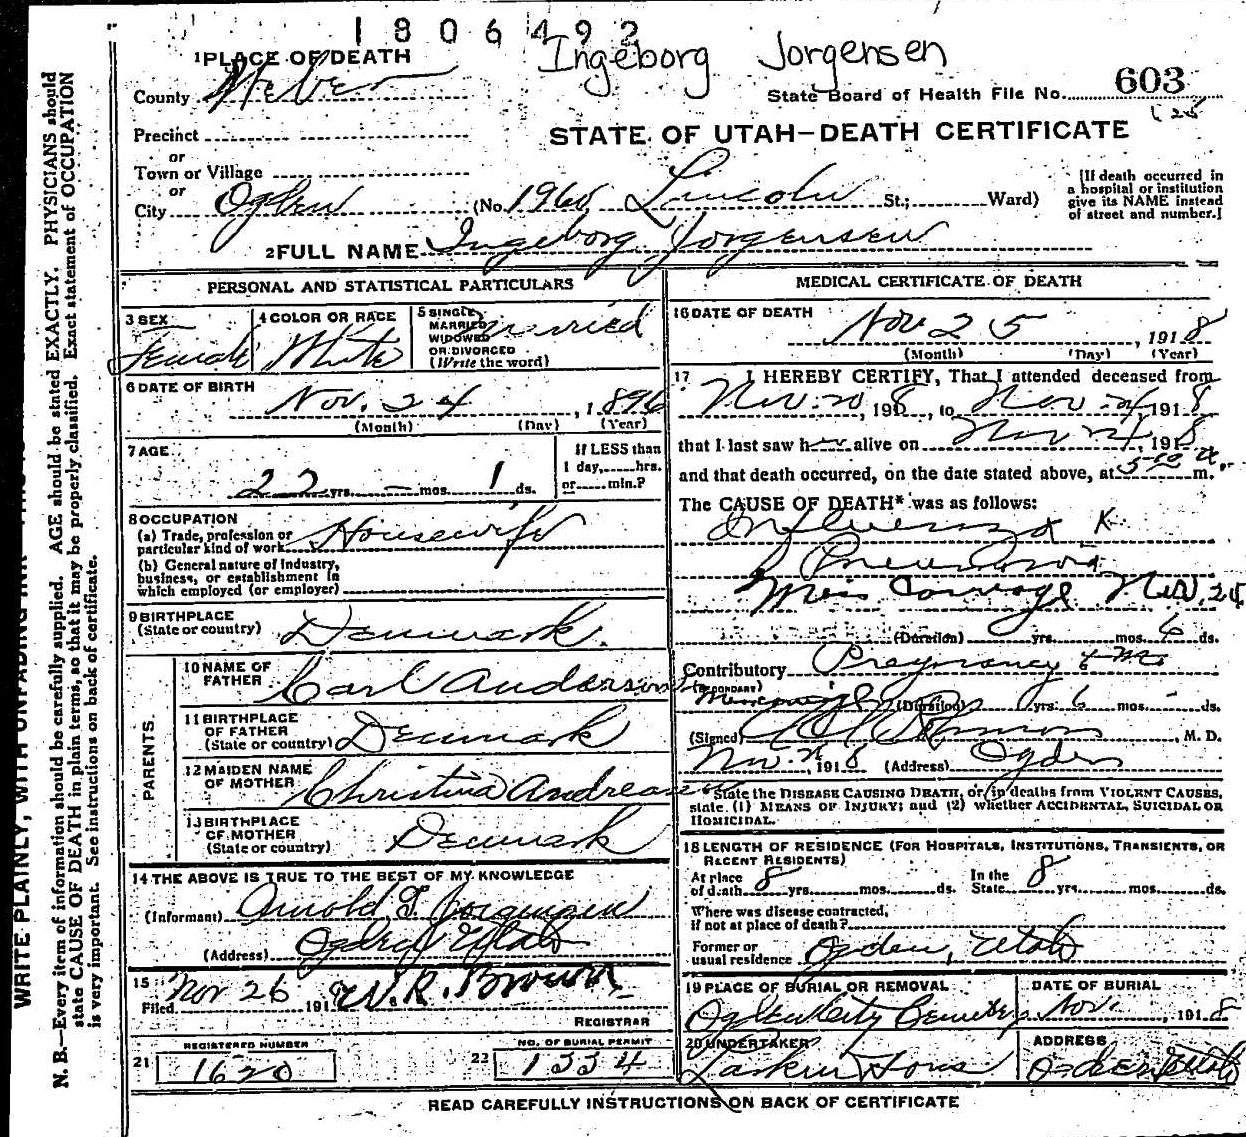 1806492
Ingeborg Jorgensen
1 PLACE OF DEATH
County Weber
State Board of Health File No. 603
125
Precinct
STATE OF UTAH—DEATH CERTIFICATE
or
Town or Village
or
City Ogden (No. 1960 Lincoln St.; Ward)
[If death occurred in
a hospital or institution
give its NAME instead
of street and number.]
2 FULL NAME Ingeborg Jorgensen
PERSONAL AND STATISTICAL PARTICULARS
3 SEX Female
4 COLOR OR RACE White
5 SINGLE, MARRIED, WIDOWED OR DIVORCED (Write the word) Married
6 DATE OF BIRTH Nov. 24, 1896
(Month) (Day) (Year)
7 AGE
22 yrs. - mos. 1 ds.
If LESS than
1 day, hrs.
or min.?
8 OCCUPATION
(a) Trade, profession or
particular kind of work Housewife
(b) General nature of Industry,
business, or establishment in
which employed (or employer)
9 BIRTHPLACE
(State or country) Denmark.
PARENTS.
10 NAME OF
FATHER Carl Anderson
11 BIRTHPLACE
OF FATHER
(State or country) Denmark
12 MAIDEN NAME
OF MOTHER Christina Andreasen
13 BIRTHPLACE
OF MOTHER
(State or country) Denmark
14 THE ABOVE IS TRUE TO THE BEST OF MY KNOWLEDGE
(Informant) Arnold Jorgensen
(Address) Ogden Utah
15
Filed Nov 26 1918 W. R. Brown
REGISTRAR
REGISTERED NUMBER
21 1620
NO. OF BURIAL PERMIT
22 1334
MEDICAL CERTIFICATE OF DEATH
16 DATE OF DEATH
Nov 25, 1918
(Month) (Day) (Year)
17 I HEREBY CERTIFY, That I attended deceased from
Nov. 20, 1918, to Nov 24, 1918
that I last saw her alive on Nov 24, 1918
and that death occurred, on the date stated above, at 5-10 a.m.
The CAUSE OF DEATH* was as follows:
Influenza K
Pneumonia
Miscarriage Nov. 25
(Duration) yrs. mos. 6 ds.
Contributory Pregnancy 6 m
(SECONDARY)
Miscarriage (Duration) 0 yrs. 6 mos. - ds.
(Signed) M. D.
Nov. 1918 (Address) Ogden
* State the DISEASE CAUSING DEATH, or, in deaths from VIOLENT CAUSES,
state (1) MEANS OF INJURY; and (2) whether ACCIDENTAL, SUICIDAL OR
HOMICIDAL.
18 LENGTH OF RESIDENCE (FOR HOSPITALS, INSTITUTIONS, TRANSIENTS, OR
RECENT RESIDENTS)
At place
of death 8 yrs. mos. ds.
In the
State 8 yrs. mos. ds.
Where was disease contracted,
if not at place of death?
Former or
usual residence Ogden, Utah
19 PLACE OF BURIAL OR REMOVAL
Ogden City Cemetery
DATE OF BURIAL
Nov. , 1918
20 UNDERTAKER
Larkin Sons
ADDRESS
Ogden Utah
READ CAREFULLY INSTRUCTIONS ON BACK OF CERTIFICATE
WRITE PLAINLY, WITH UNFADING INK
N. B.—Every item of information should be carefully supplied. AGE should be stated EXACTLY. PHYSICIANS should
state CAUSE OF DEATH in plain terms, so that it may be properly classified. Exact statement of OCCUPATION
is very important. See instructions on back of certificate.